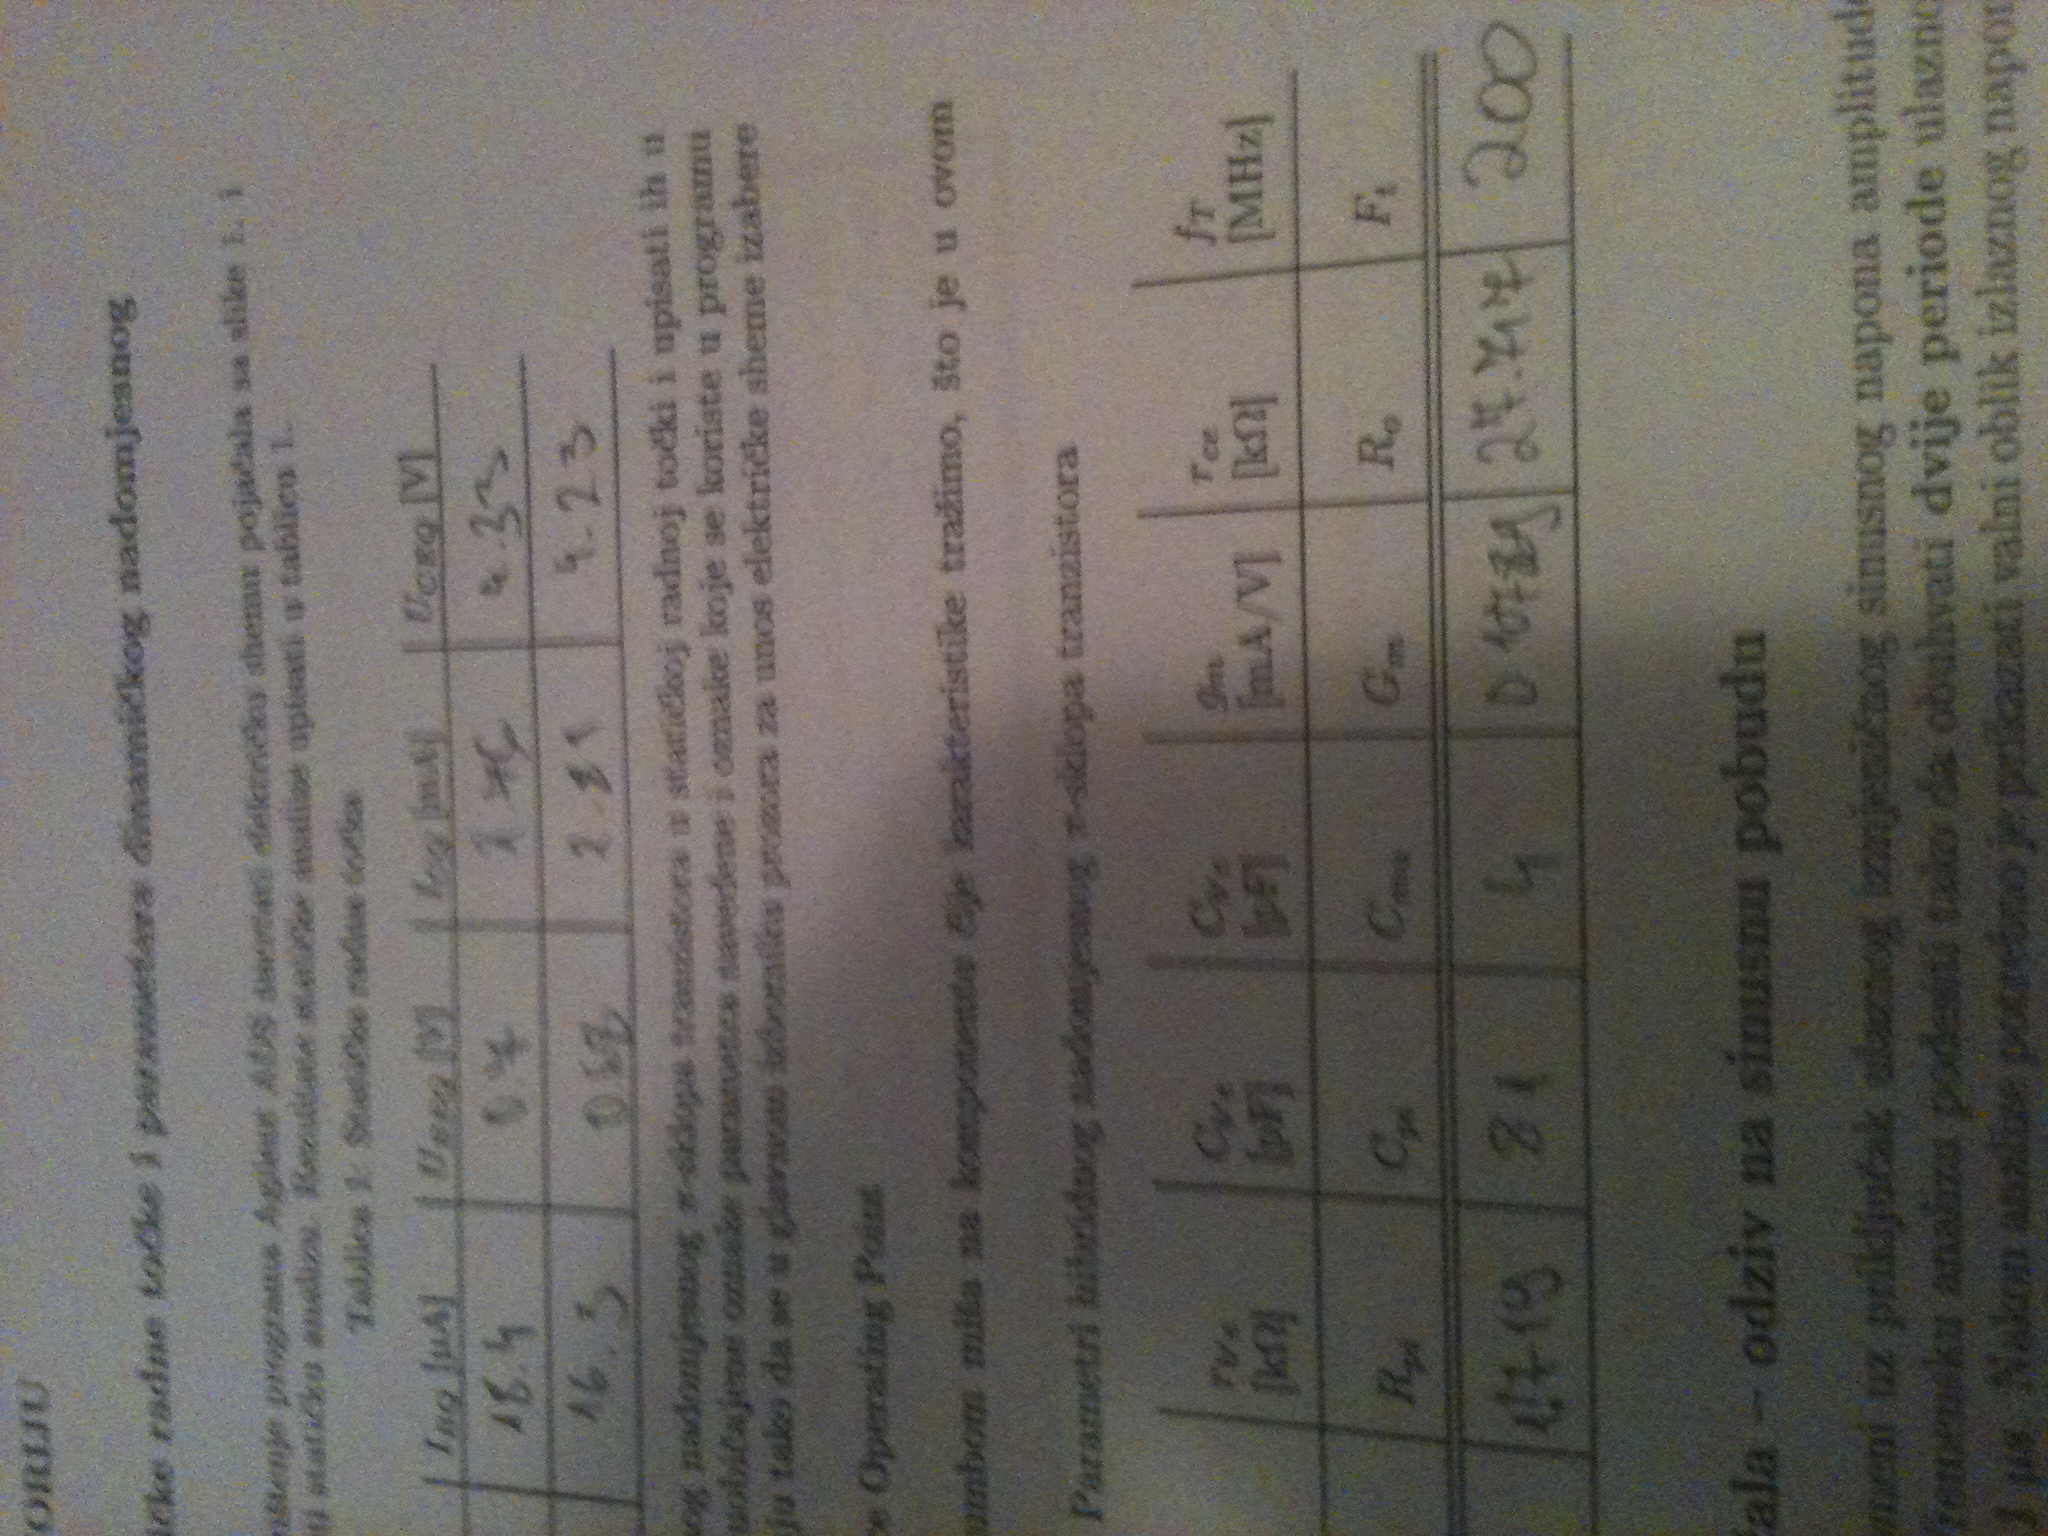 ORIJU
ičke radne točke i parametara dinamičkog nadomjesnog
rištenje programa Agilent ADS nacrtati električku shemu pojačala sa slike 1. i
iti statičku analizu. Rezultate statičke analize upisati u tablicu 1.
Tablica 1: Statička radna točka
I_BQ [μA] U_BEQ [V] I_CQ [mA] U_CEQ [V]
18.4 0.7 2.76 4.33
16.3 0.68 2.81 4.23
nog nadomjesnog π-sklopa tranzistora u statičkoj radnoj točki i upisati ih u
uobičajene oznake parametra navedene i oznake koje se koriste u programu
ju tako da se u glavnom izborniku prozora za unos električke sheme izabere
ce Operating Point
umbom miša na komponentu čije karakteristike tražimo, što je u ovom
Parametri hibridnog nadomjesnog π-sklopa tranzistora
r_b'e C_b'e C_b'c g_m r_ce f_T
[kΩ] [pF] [pF] [mA/V] [kΩ] [MHz]
R_pi C_pi C_mu G_m R_o F_t
81 4 27.747 200
čala – odziv na sinusnu pobudu
meni uz priključak ulaznog izmjeničnog sinusnog napona amplitude
Vremensku analizu podesiti tako da obuhvati dvije periode ulazno
1 μs. Nakon analize potrebno je prikazati valni oblik izlaznog napon